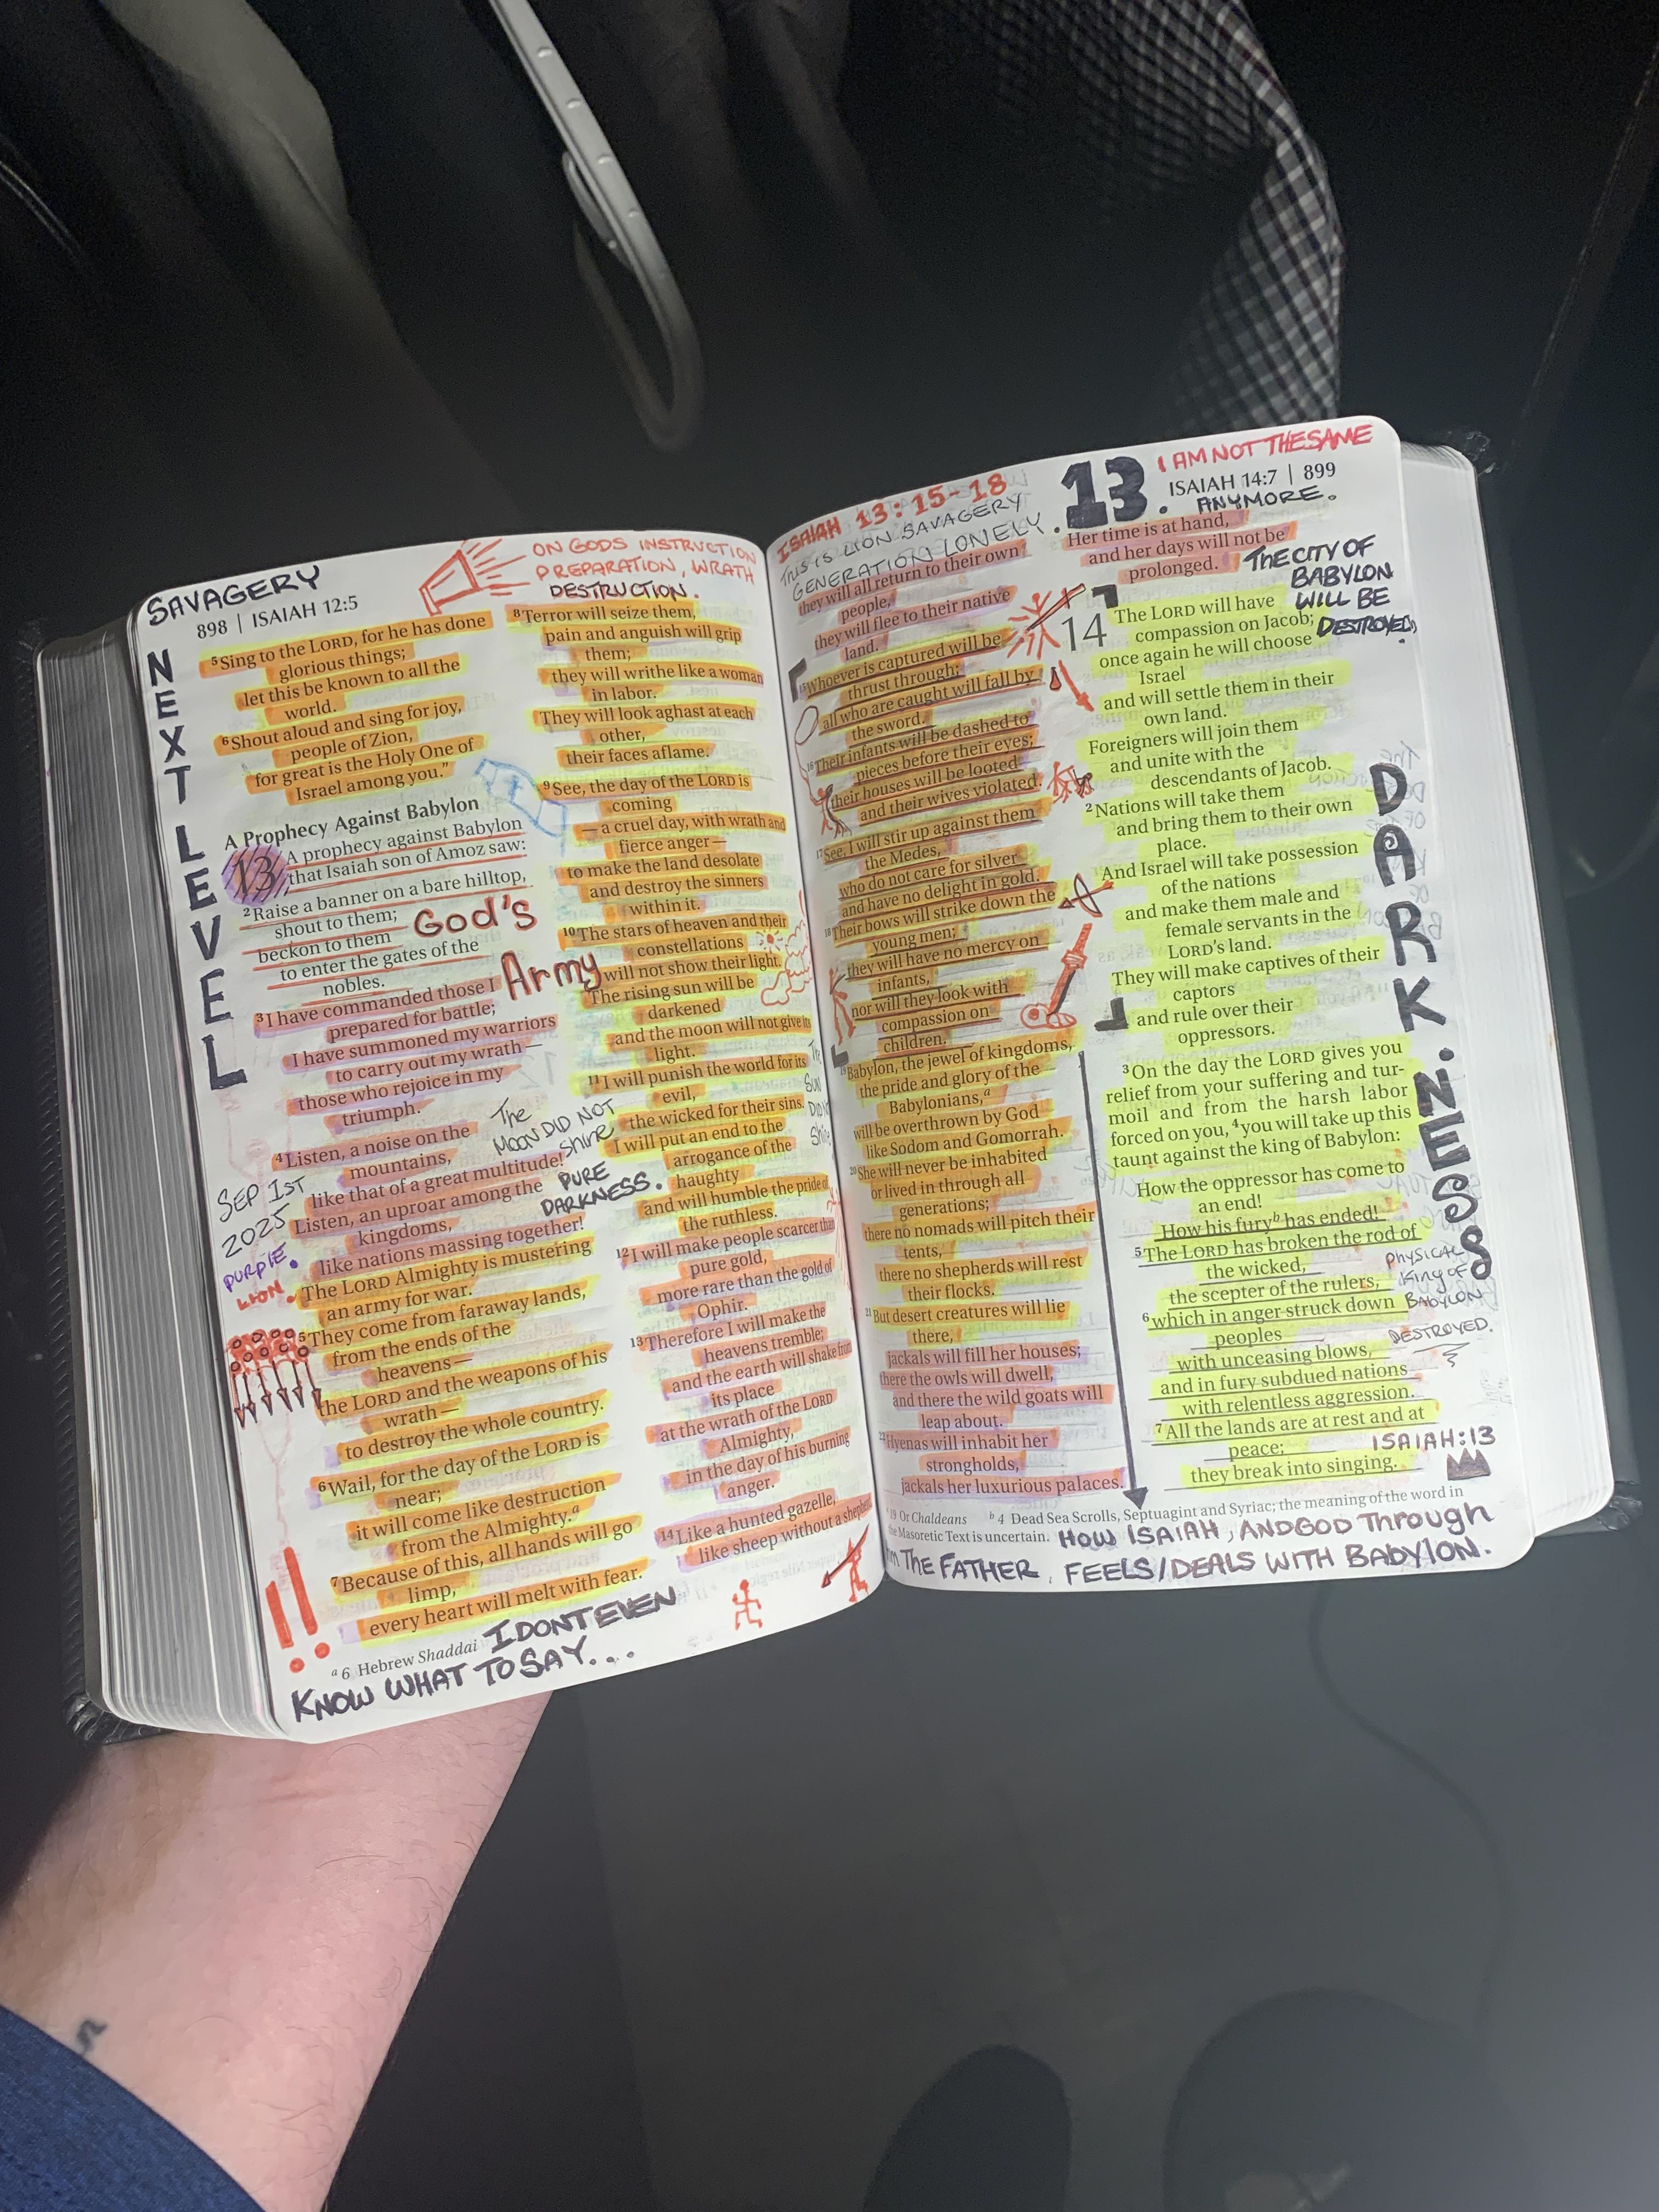 SAVAGERY
898 | ISAIAH 12:5
NEXT LEVEL
⁵Sing to the LORD, for he has done
glorious things;
let this be known to all the
world.
⁶Shout aloud and sing for joy,
people of Zion,
for great is the Holy One of
Israel among you.”
A Prophecy Against Babylon
13 A prophecy against Babylon
that Isaiah son of Amoz saw:
²Raise a banner on a bare hilltop,
shout to them;
beckon to them
to enter the gates of the
nobles.
God's
Army
³I have commanded those I
prepared for battle;
I have summoned my warriors
to carry out my wrath—
those who rejoice in my
triumph.
The
MOON DID NOT
Shine
PURE
DARKNESS.
⁴Listen, a noise on the
mountains,
like that of a great multitude!
Listen, an uproar among the
kingdoms,
like nations massing together!
The LORD Almighty is mustering
an army for war.
SEP 1ST
2025
PURPLE.
LION.
⁵They come from faraway lands,
from the ends of the
heavens—
the LORD and the weapons of his
wrath—
to destroy the whole country.
⁶Wail, for the day of the LORD is
near;
it will come like destruction
from the Almighty.ᵃ
⁷Because of this, all hands will go
limp,
every heart will melt with fear.
!!
ᵃ 6 Hebrew Shaddai
I DONT EVEN
KNOW WHAT TO SAY...
ON GODS INSTRUCTION
PREPARATION, WRATH
DESTRUCTION.
⁸Terror will seize them,
pain and anguish will grip
them;
they will writhe like a woman
in labor.
They will look aghast at each
other,
their faces aflame.
⁹See, the day of the LORD is
coming
—a cruel day, with wrath and
fierce anger—
to make the land desolate
and destroy the sinners
within it.
¹⁰The stars of heaven and their
constellations
will not show their light.
The rising sun will be
darkened
and the moon will not give its
light.
The
SUN
DID NOT
Shine
¹¹I will punish the world for its
evil,
the wicked for their sins.
I will put an end to the
arrogance of the
haughty
and will humble the pride of
the ruthless.
¹²I will make people scarcer than
pure gold,
more rare than the gold of
Ophir.
¹³Therefore I will make the
heavens tremble;
and the earth will shake from
its place
at the wrath of the LORD
Almighty,
in the day of his burning
anger.
¹⁴Like a hunted gazelle,
like sheep without a shepherd,
ISAIAH 13:15-18
THIS IS LION SAVAGERY
GENERATION LONELY.
they will all return to their own
people,
they will flee to their native
land.
¹⁵Whoever is captured will be
thrust through;
all who are caught will fall by
the sword.
¹⁶Their infants will be dashed to
pieces before their eyes;
their houses will be looted
and their wives violated.
¹⁷See, I will stir up against them
the Medes,
who do not care for silver
and have no delight in gold.
¹⁸Their bows will strike down the
young men;
they will have no mercy on
infants,
nor will they look with
compassion on
children.
¹⁹Babylon, the jewel of kingdoms,
the pride and glory of the
Babylonians,ᵃ
will be overthrown by God
like Sodom and Gomorrah.
²⁰She will never be inhabited
or lived in through all
generations;
there no nomads will pitch their
tents,
there no shepherds will rest
their flocks.
²¹But desert creatures will lie
there,
jackals will fill her houses;
there the owls will dwell,
and there the wild goats will
leap about.
²²Hyenas will inhabit her
strongholds,
jackals her luxurious palaces.
13.
I AM NOT THE SAME
ISAIAH 14:7 | 899
ANYMORE.
Her time is at hand,
and her days will not be
prolonged.
THE CITY OF
BABYLON
WILL BE
DESTROYED.
14 The LORD will have
compassion on Jacob;
once again he will choose
Israel
and will settle them in their
own land.
Foreigners will join them
and unite with the
descendants of Jacob.
²Nations will take them
and bring them to their own
place.
And Israel will take possession
of the nations
and make them male and
female servants in the
LORD's land.
They will make captives of their
captors
and rule over their
oppressors.
DARK.NESS
³On the day the LORD gives you
relief from your suffering and tur-
moil and from the harsh labor
forced on you, ⁴you will take up this
taunt against the king of Babylon:
How the oppressor has come to
an end!
How his furyᵇ has ended!
⁵The LORD has broken the rod of
the wicked,
the scepter of the rulers,
⁶which in anger struck down
peoples
with unceasing blows,
and in fury subdued nations
with relentless aggression.
⁷All the lands are at rest and at
peace;
they break into singing.
PHYSICAL
King OF
BABYLON
DESTROYED.
ISAIAH:13
ᵃ 19 Or Chaldeans ᵇ 4 Dead Sea Scrolls, Septuagint and Syriac; the meaning of the word in
the Masoretic Text is uncertain.
HOW ISAIAH, AND GOD THROUGH
THE FATHER, FEELS/DEALS WITH BABYLON.